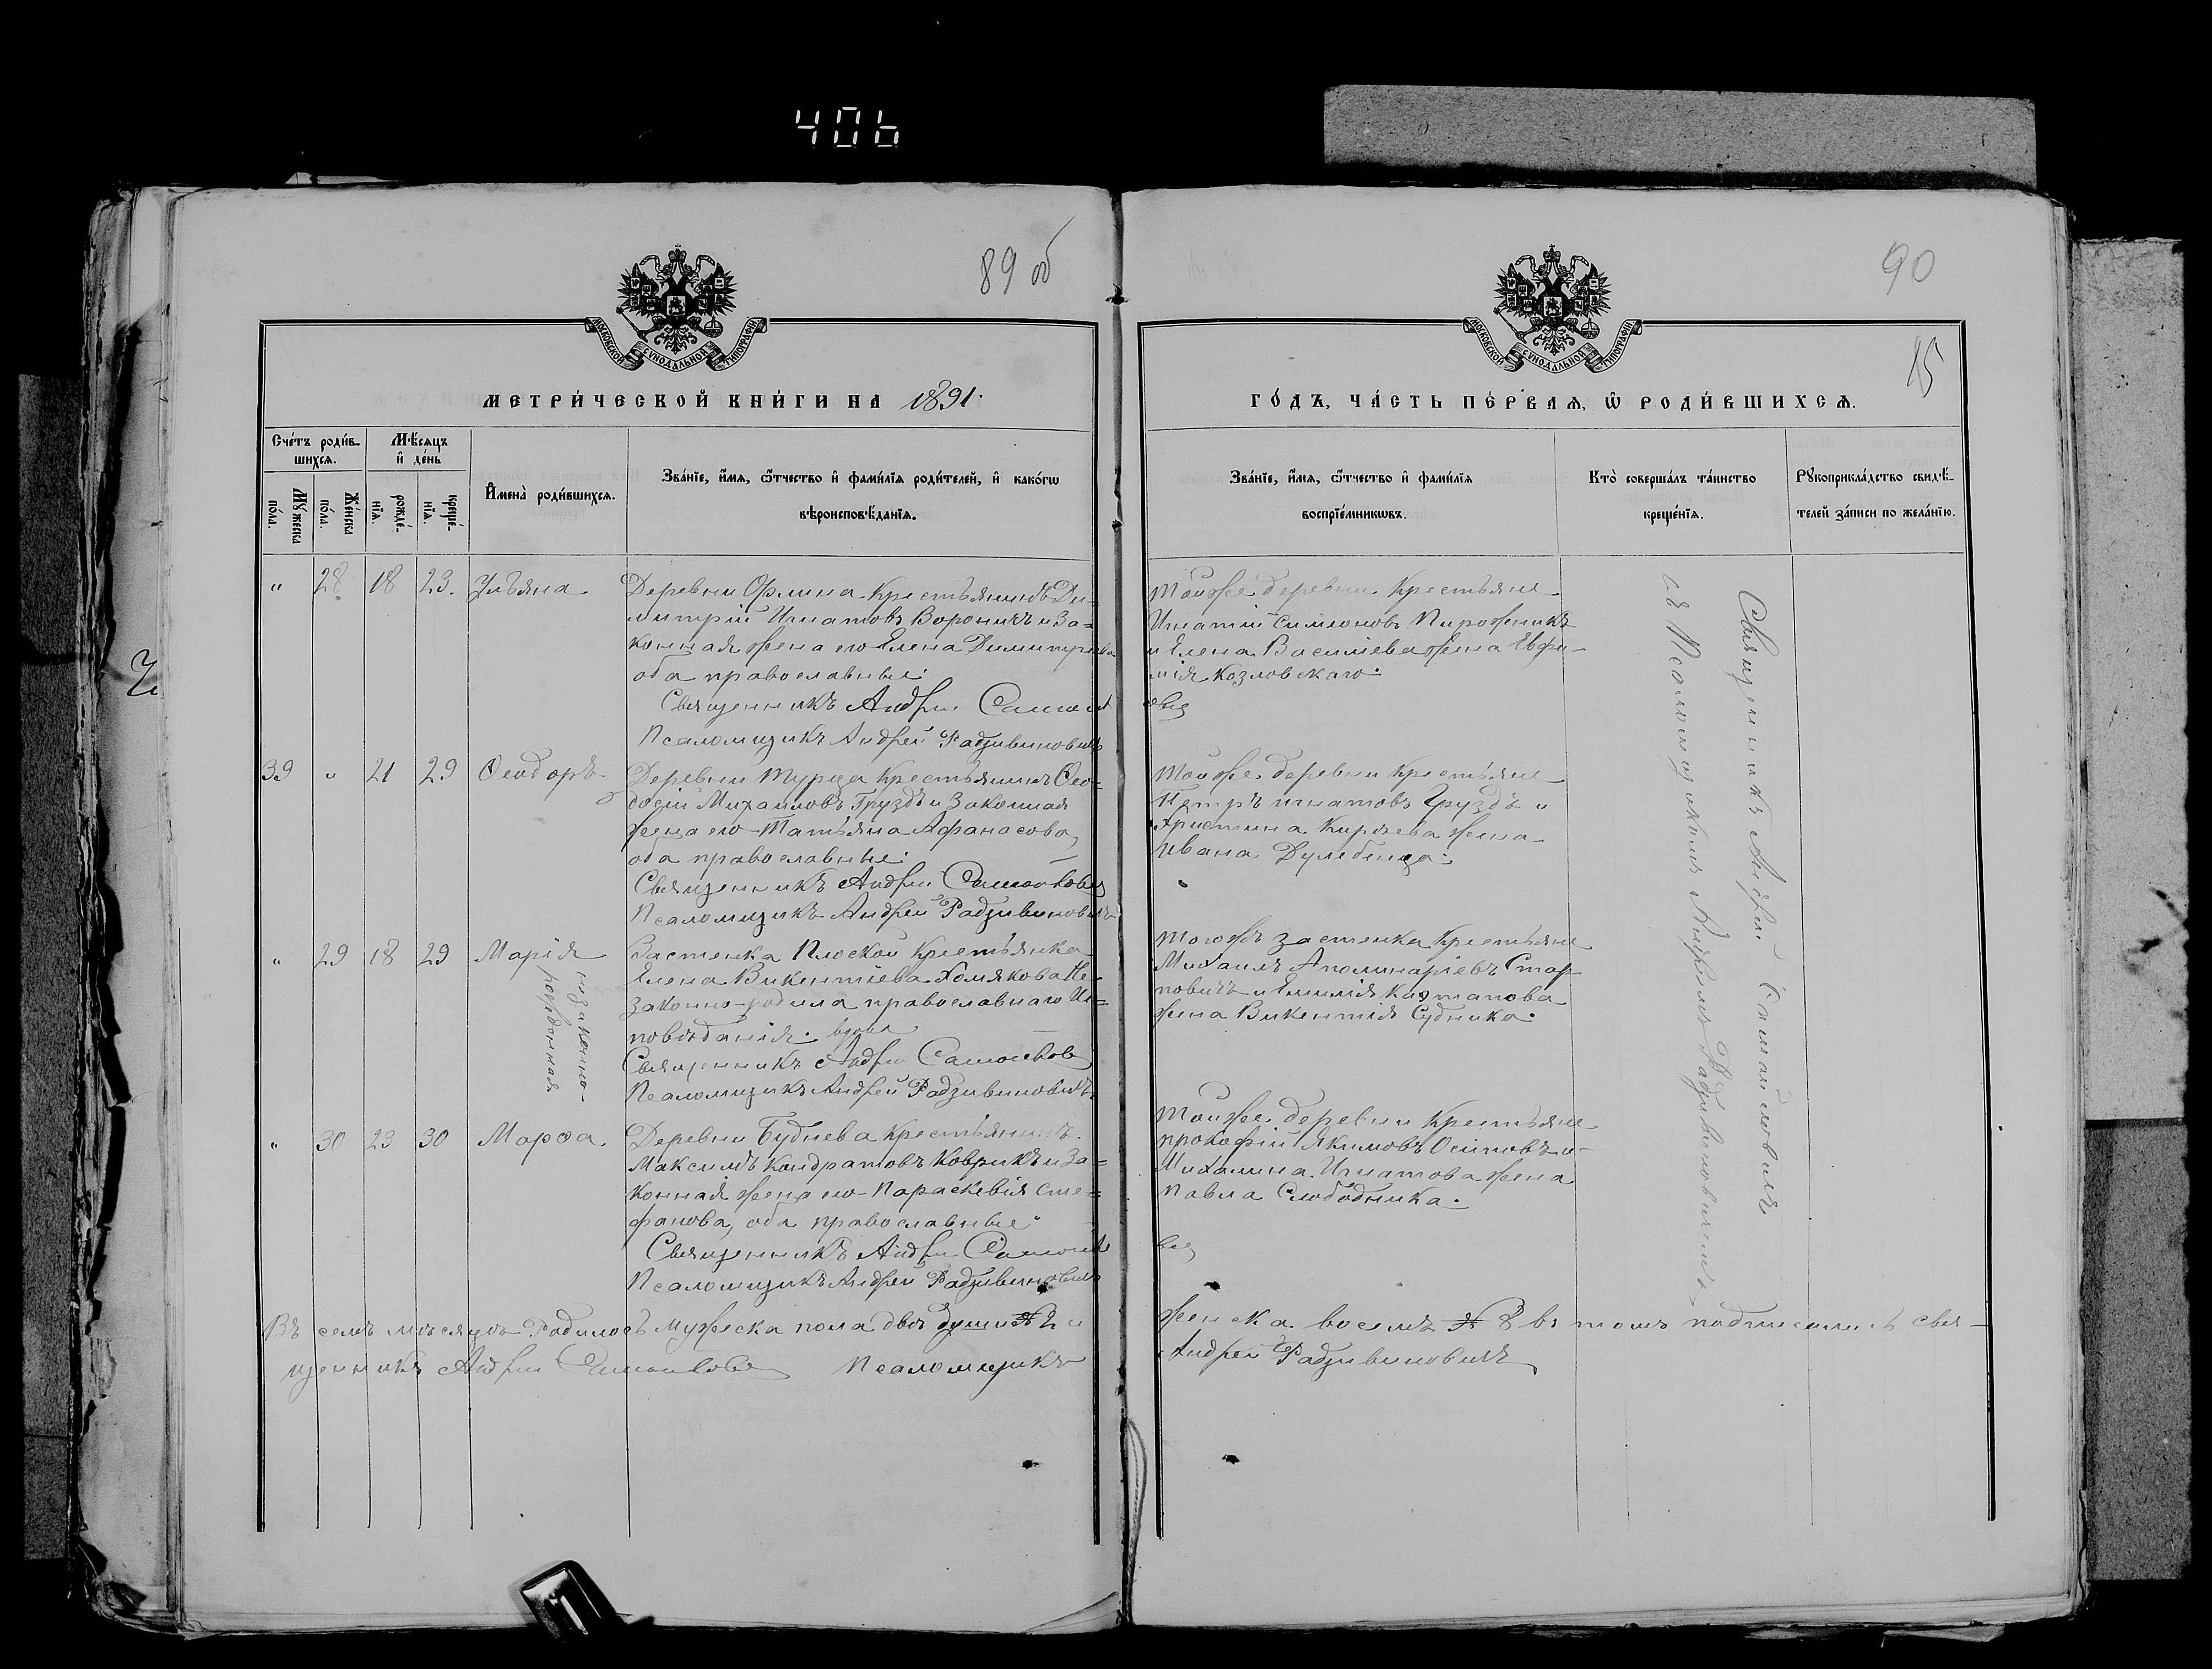 406
89 об
90
15
МОСКОВСКОЙ СѴНОДАЛЬНОЙ ТИПОГРАФІИ
МОСКОВСКОЙ СѴНОДАЛЬНОЙ ТИПОГРАФІИ
МЕТРИ́ЧЕСКОЙ КНИ́ГИ НА 1891.
ГО́ДЪ, ЧА́СТЬ ПЕ́РВАѦ, Ѡ҆ РОДИ́ВШИХСѦ.
Сче́тъ роди́в-
шихсѧ.
Мѣ́сѧцъ
и҆ де́нь
Мꙋ́жеска по́ла.
Же́нска по́ла.
рожде́-нїѧ.
креще́-нїѧ.
И҆мена̀ роди́вшихсѧ.
Зва́нїе, и҆́мѧ, ѻ҆́тчество и҆ фами́лїѧ роди́телей, и҆ како́гѡ
вѣроисповѣ́данїѧ.
Зва́нїе, и҆́мѧ, ѻ҆́тчество и҆ фами́лїѧ
воспрїе́мникѡвъ.
Кто̀ соверша́лъ та́инство
креще́нїѧ.
Рꙋкоприкла́дство свидѣ́-
телей за́писи по жела́нїю.
" 28 18 23. Ульяна
Деревни Орлина Крестьянинъ Ди-
митрій Игнатовъ Вороничъ и за=
конная жена его Елена Димитріева
оба православные.
Священникъ Андрей
Псаломщикъ Андрей Радзивиновичъ
Тойже деревни Крестьяне
Игнатій Симіоновъ Пирожникъ
и Елена Васильева жена Евфи-
мія Козловскаго.
39 " 21 29 Ѳеодоръ
Деревни Турца Крестьянинъ Ѳео-
досій Михаиловъ Груздъ и законная
жена его Татьяна Афанасова,
оба православные.
Священникъ Андрей
Псаломщикъ Андрей Радзивиновичъ
Тойже деревни Крестьяне
Петръ Игнатовъ Груздъ и
Христина Киреева жена
Ивана Дулебенца.
" 29 18 29 Марія
незаконно-
рожденная
Застенка Плоской Крестьянка
Елена Викентіева Хомякова не-
законно-родила православнаго ис=
повѣданія. вдова
Священникъ Андрей
Псаломщикъ Андрей Радзивиновичъ
Тогожъ застенка Крестьяне
Михаилъ Аполинаріевъ Стар
повичъ и Емилія
жена Викентія Судника.
" 30 23 30 Марѳа.
Деревни Буднева Крестьянинъ
Максимъ Кондратовъ Коврикъ и за=
конная жена его Параскевія Сте=
фанова, оба православные.
Священникъ Андрей
Псаломщикъ Андрей Радзивиновичъ
Тойже деревни Крестьяне
Прокофій Якимовъ Осиповъ и
Михалина Игнатова жена
Павла Слободника.
Священникъ Андрей
съ Псаломщикомъ Андреемъ Радзивиновичемъ
Въ семъ мѣсяцѣ Родилось мужеска пола двѣ души № 2 и женска восемъ № 8 въ томъ подписались свя-
щенникъ Андрей Псаломщикъ Андрей Радзивиновичъ